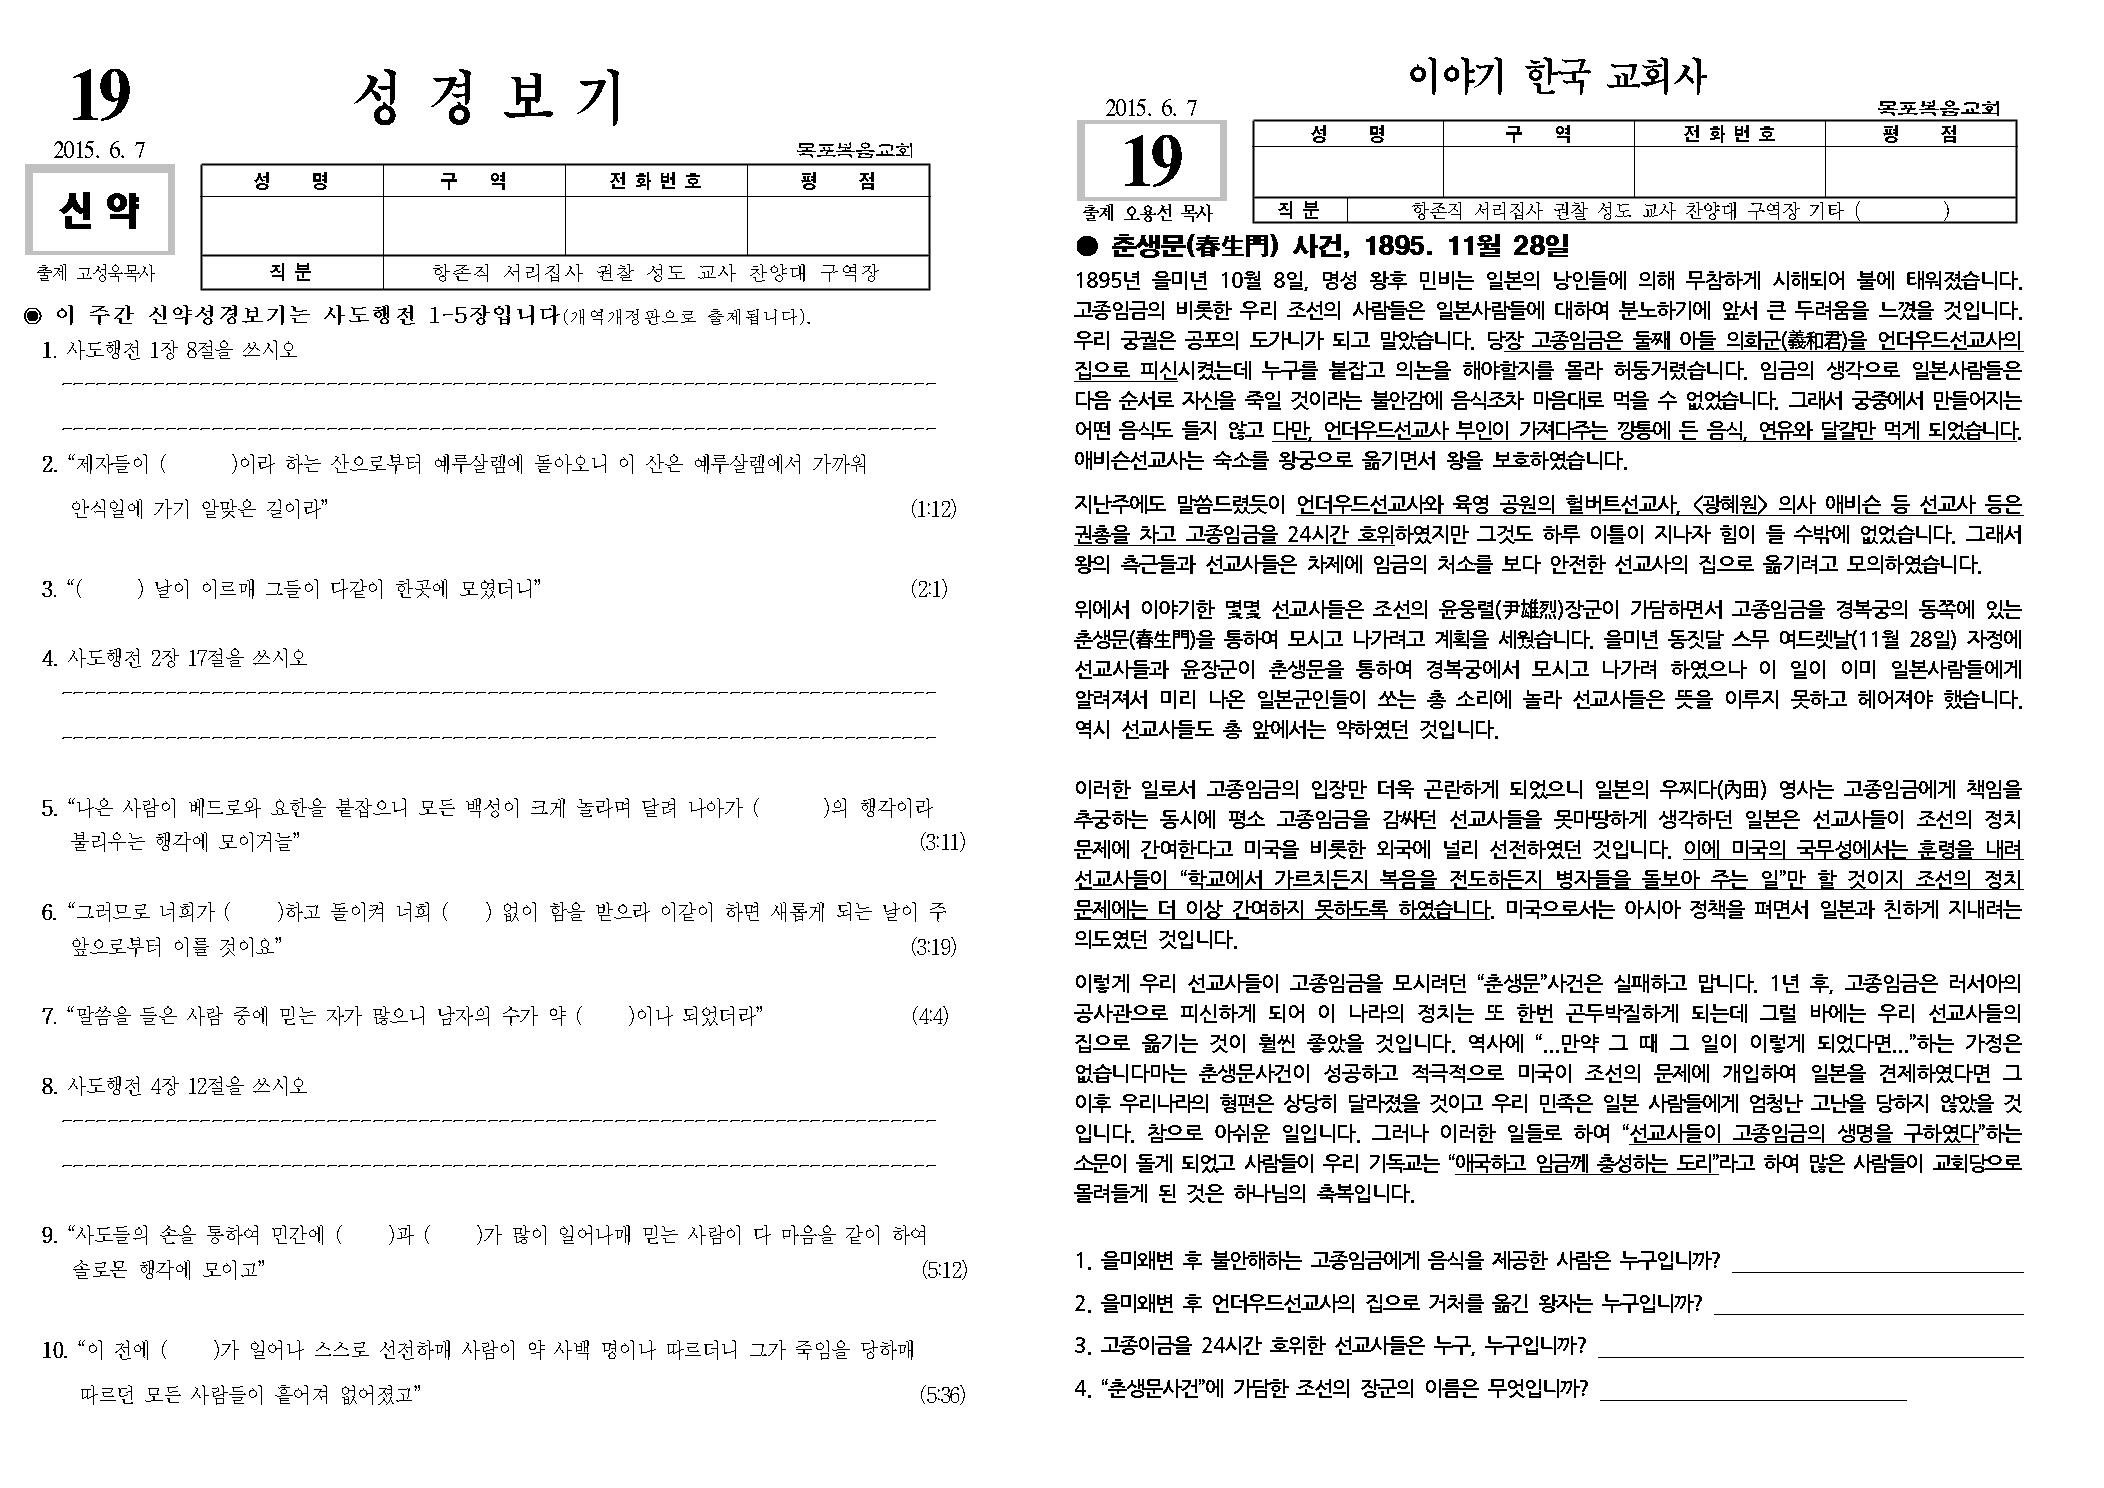 19
성 경 보 기
2015. 6. 7
목포복음교회
신 약
성 명 구 역 전 화 번 호 평 점
출제 고성욱목사
직 분 항존직 서리집사 권찰 성도 교사 찬양대 구역장
◉ 이 주간 신약성경보기는 사도행전 1-5장입니다(개역개정판으로 출제됩니다).
1. 사도행전 1장 8절을 쓰시오
2. “제자들이 ( )이라 하는 산으로부터 예루살렘에 돌아오니 이 산은 예루살렘에서 가까워
안식일에 가기 알맞은 길이라” (1:12)
3. “( ) 날이 이르매 그들이 다같이 한곳에 모였더니” (2:1)
4. 사도행전 2장 17절을 쓰시오
5. “나은 사람이 베드로와 요한을 붙잡으니 모든 백성이 크게 놀라며 달려 나아가 ( )의 행각이라
불리우는 행각에 모이거늘” (3:11)
6. “그러므로 너희가 ( )하고 돌이켜 너희 ( ) 없이 함을 받으라 이같이 하면 새롭게 되는 날이 주
앞으로부터 이를 것이요” (3:19)
7. “말씀을 들은 사람 중에 믿는 자가 많으니 남자의 수가 약 ( )이나 되었더라” (4:4)
8. 사도행전 4장 12절을 쓰시오
9. “사도들의 손을 통하여 민간에 ( )과 ( )가 많이 일어나매 믿는 사람이 다 마음을 같이 하여
솔로몬 행각에 모이고” (5:12)
10. “이 전에 ( )가 일어나 스스로 선전하매 사람이 약 사백 명이나 따르더니 그가 죽임을 당하매
따르던 모든 사람들이 흩어져 없어졌고” (5:36)
이야기 한국 교회사
2015. 6. 7
목포복음교회
19
성 명 구 역 전 화 번 호 평 점
출제 오용선 목사
직 분 항존직 서리집사 권찰 성도 교사 찬양대 구역장 기타 ( )
● 춘생문(春生門) 사건, 1895. 11월 28일
1895년 을미년 10월 8일, 명성 왕후 민비는 일본의 낭인들에 의해 무참하게 시해되어 불에 태워졌습니다.
고종임금의 비롯한 우리 조선의 사람들은 일본사람들에 대하여 분노하기에 앞서 큰 두려움을 느꼈을 것입니다.
우리 궁궐은 공포의 도가니가 되고 말았습니다. 당장 고종임금은 둘째 아들 의화군(義和君)을 언더우드선교사의
집으로 피신시켰는데 누구를 붙잡고 의논을 해야할지를 몰라 허둥거렸습니다. 임금의 생각으로 일본사람들은
다음 순서로 자신을 죽일 것이라는 불안감에 음식조차 마음대로 먹을 수 없었습니다. 그래서 궁중에서 만들어지는
어떤 음식도 들지 않고 다만, 언더우드선교사 부인이 가져다주는 깡통에 든 음식, 연유와 달걀만 먹게 되었습니다.
애비슨선교사는 숙소를 왕궁으로 옮기면서 왕을 보호하였습니다.
지난주에도 말씀드렸듯이 언더우드선교사와 육영 공원의 헐버트선교사, 〈광혜원〉 의사 애비슨 등 선교사 등은
권총을 차고 고종임금을 24시간 호위하였지만 그것도 하루 이틀이 지나자 힘이 들 수밖에 없었습니다. 그래서
왕의 측근들과 선교사들은 차제에 임금의 처소를 보다 안전한 선교사의 집으로 옮기려고 모의하였습니다.
위에서 이야기한 몇몇 선교사들은 조선의 윤웅렬(尹雄烈)장군이 가담하면서 고종임금을 경복궁의 동쪽에 있는
춘생문(春生門)을 통하여 모시고 나가려고 계획을 세웠습니다. 을미년 동짓달 스무 여드렛날(11월 28일) 자정에
선교사들과 윤장군이 춘생문을 통하여 경복궁에서 모시고 나가려 하였으나 이 일이 이미 일본사람들에게
알려져서 미리 나온 일본군인들이 쏘는 총 소리에 놀라 선교사들은 뜻을 이루지 못하고 헤어져야 했습니다.
역시 선교사들도 총 앞에서는 약하였던 것입니다.
이러한 일로서 고종임금의 입장만 더욱 곤란하게 되었으니 일본의 우찌다(內田) 영사는 고종임금에게 책임을
추궁하는 동시에 평소 고종임금을 감싸던 선교사들을 못마땅하게 생각하던 일본은 선교사들이 조선의 정치
문제에 간여한다고 미국을 비롯한 외국에 널리 선전하였던 것입니다. 이에 미국의 국무성에서는 훈령을 내려
선교사들이 “학교에서 가르치든지 복음을 전도하든지 병자들을 돌보아 주는 일”만 할 것이지 조선의 정치
문제에는 더 이상 간여하지 못하도록 하였습니다. 미국으로서는 아시아 정책을 펴면서 일본과 친하게 지내려는
의도였던 것입니다.
이렇게 우리 선교사들이 고종임금을 모시려던 “춘생문”사건은 실패하고 맙니다. 1년 후, 고종임금은 러서아의
공사관으로 피신하게 되어 이 나라의 정치는 또 한번 곤두박질하게 되는데 그럴 바에는 우리 선교사들의
집으로 옮기는 것이 훨씬 좋았을 것입니다. 역사에 “...만약 그 때 그 일이 이렇게 되었다면...”하는 가정은
없습니다마는 춘생문사건이 성공하고 적극적으로 미국이 조선의 문제에 개입하여 일본을 견제하였다면 그
이후 우리나라의 형편은 상당히 달라졌을 것이고 우리 민족은 일본 사람들에게 엄청난 고난을 당하지 않았을 것
입니다. 참으로 아쉬운 일입니다. 그러나 이러한 일들로 하여 “선교사들이 고종임금의 생명을 구하였다”하는
소문이 돌게 되었고 사람들이 우리 기독교는 “애국하고 임금께 충성하는 도리”라고 하여 많은 사람들이 교회당으로
몰려들게 된 것은 하나님의 축복입니다.
1. 을미왜변 후 불안해하는 고종임금에게 음식을 제공한 사람은 누구입니까?
2. 을미왜변 후 언더우드선교사의 집으로 거처를 옮긴 왕자는 누구입니까?
3. 고종이금을 24시간 호위한 선교사들은 누구, 누구입니까?
4. “춘생문사건”에 가담한 조선의 장군의 이름은 무엇입니까?